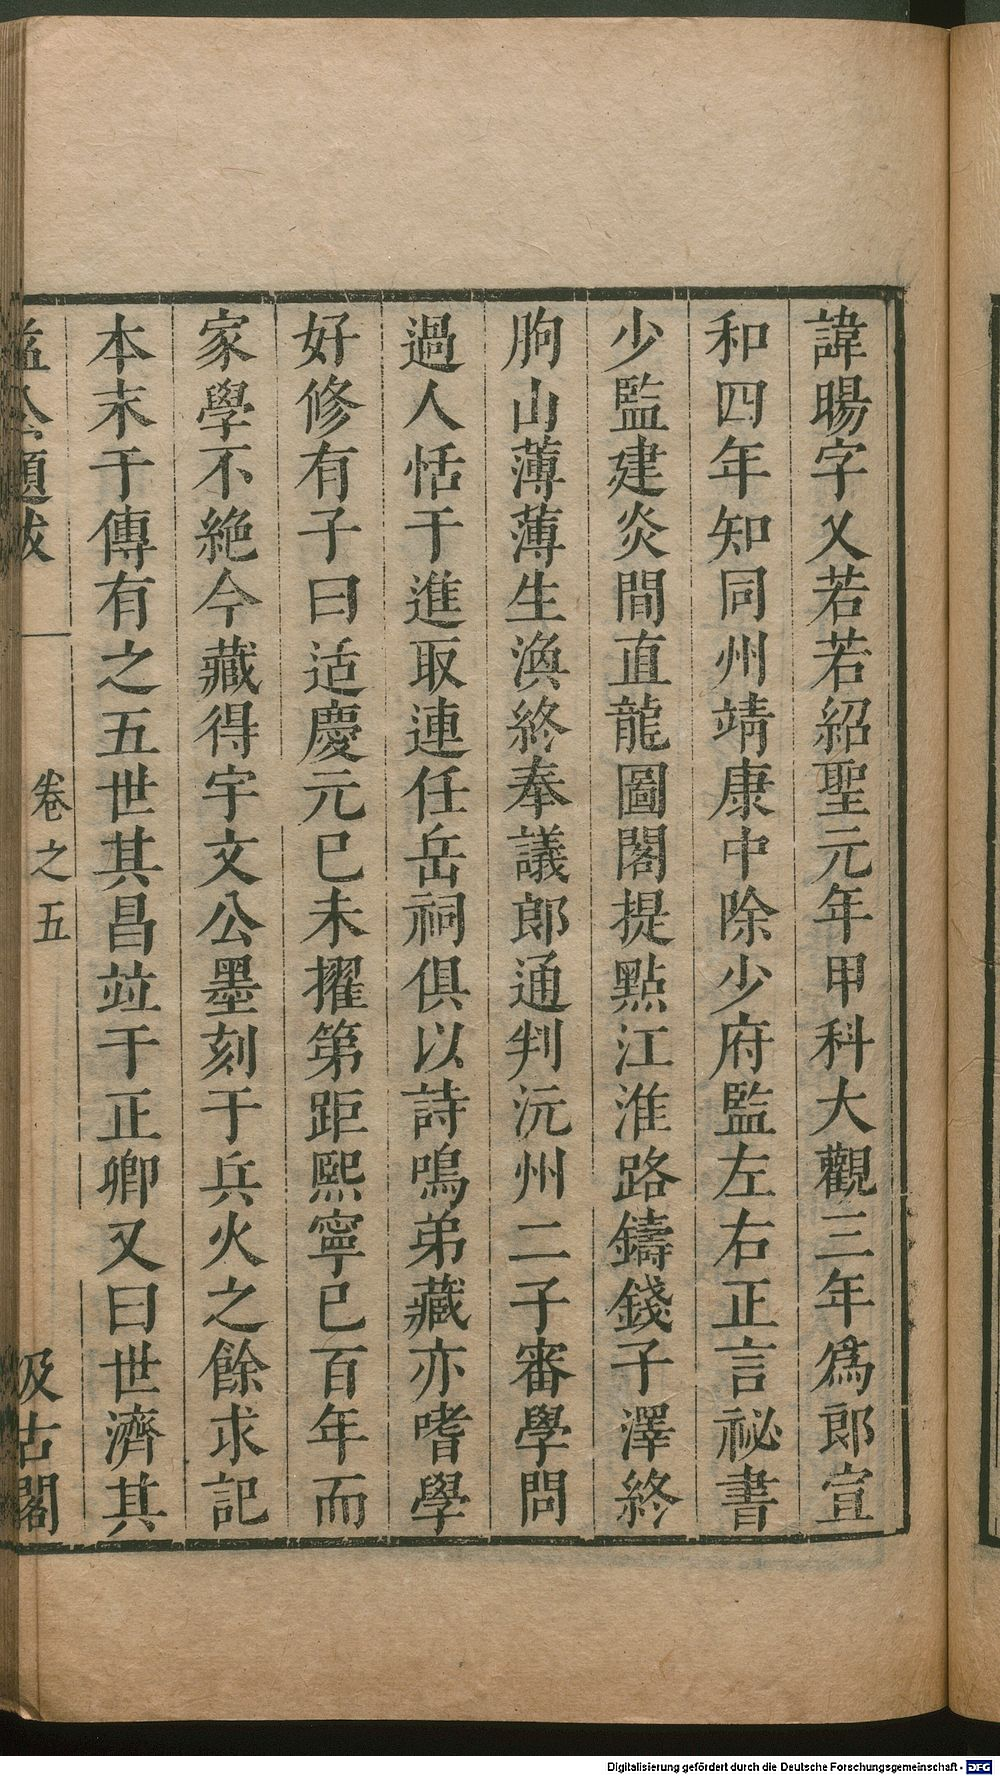 諱暘字乂若若紹聖元年甲科大觀三年為郎宣
和四年知同州靖康中除少府監左右正言祕書
少監建炎間直龍圖閣提點江淮路鑄錢子澤終
朐山薄薄生渙終奉議郎通判沅州二子審學問
過人恬于進取連任岳祠俱以詩鳴弟藏亦嗜學
好修有子曰适慶元已未擢第距熙寧已百年而
家學不絕今藏得宇文公墨刻于兵火之餘求記
本末于傳有之五世其昌竝于正卿又曰世濟其
益公題跋 卷之五 汲古閣
Digitalisierung gefördert durch die Deutsche Forschungsgemeinschaft - DFG